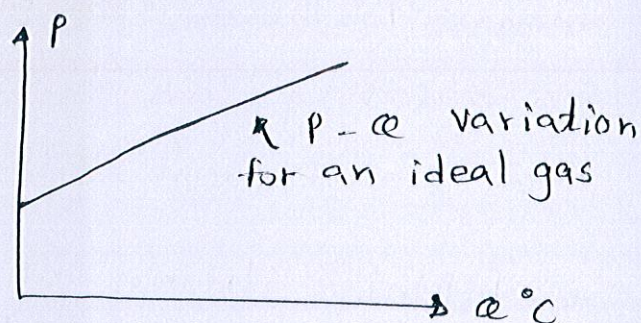 P
P - θ variation
for an ideal gas
θ °C